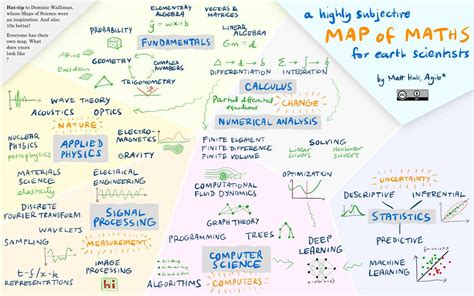 Hat-tip to Dominic Walliman,
whose Maps of Science were
an inspiration. And also
10x better!
Everyone has their
own map. What
does yours
look like
?
a highly subjective
MAP OF MATHS
for earth scientists
by Matt Hall, Agile*
ELEMENTARY
ALGEBRA
VECTORS &
MATRICES
PROBABILITY
FUNDAMENTALS
LINEAR
ALGEBRA
Affine
Euclidean
GEOMETRY
COMPLEX
NUMBERS
TRIGONOMETRY
DIFFERENTIATION
INTEGRATION
CALCULUS
Partial differential
equations
CHANGE
NUMERICAL ANALYSIS
FINITE ELEMENT
FINITE DIFFERENCE
FINITE VOLUME
SOLVING
Linear
solvers
Nonlinear
solvers
OPTIMIZATION
WAVE THEORY
ACOUSTICS
OPTICS
NATURE
NUCLEAR
PHYSICS
petrophysics
APPLIED
PHYSICS
ELECTRO-
MAGNETICS
GRAVITY
MATERIALS
SCIENCE
elasticity
ELECTRICAL
ENGINEERING
DISCRETE
FOURIER TRANSFORM
WAVELETS
SIGNAL
PROCESSING
MEASUREMENT
SAMPLING
t-f/x-k
REPRESENTATIONS
IMAGE
PROCESSING
hi
COMPUTATIONAL
FLUID DYNAMICS
GRAPH THEORY
PROGRAMMING
TREES
DEEP
LEARNING
COMPUTER
SCIENCE
COMPUTERS
ALGORITHMS
UNCERTAINTY
DESCRIPTIVE
INFERENTIAL
STATISTICS
PREDICTIVE
MACHINE
LEARNING